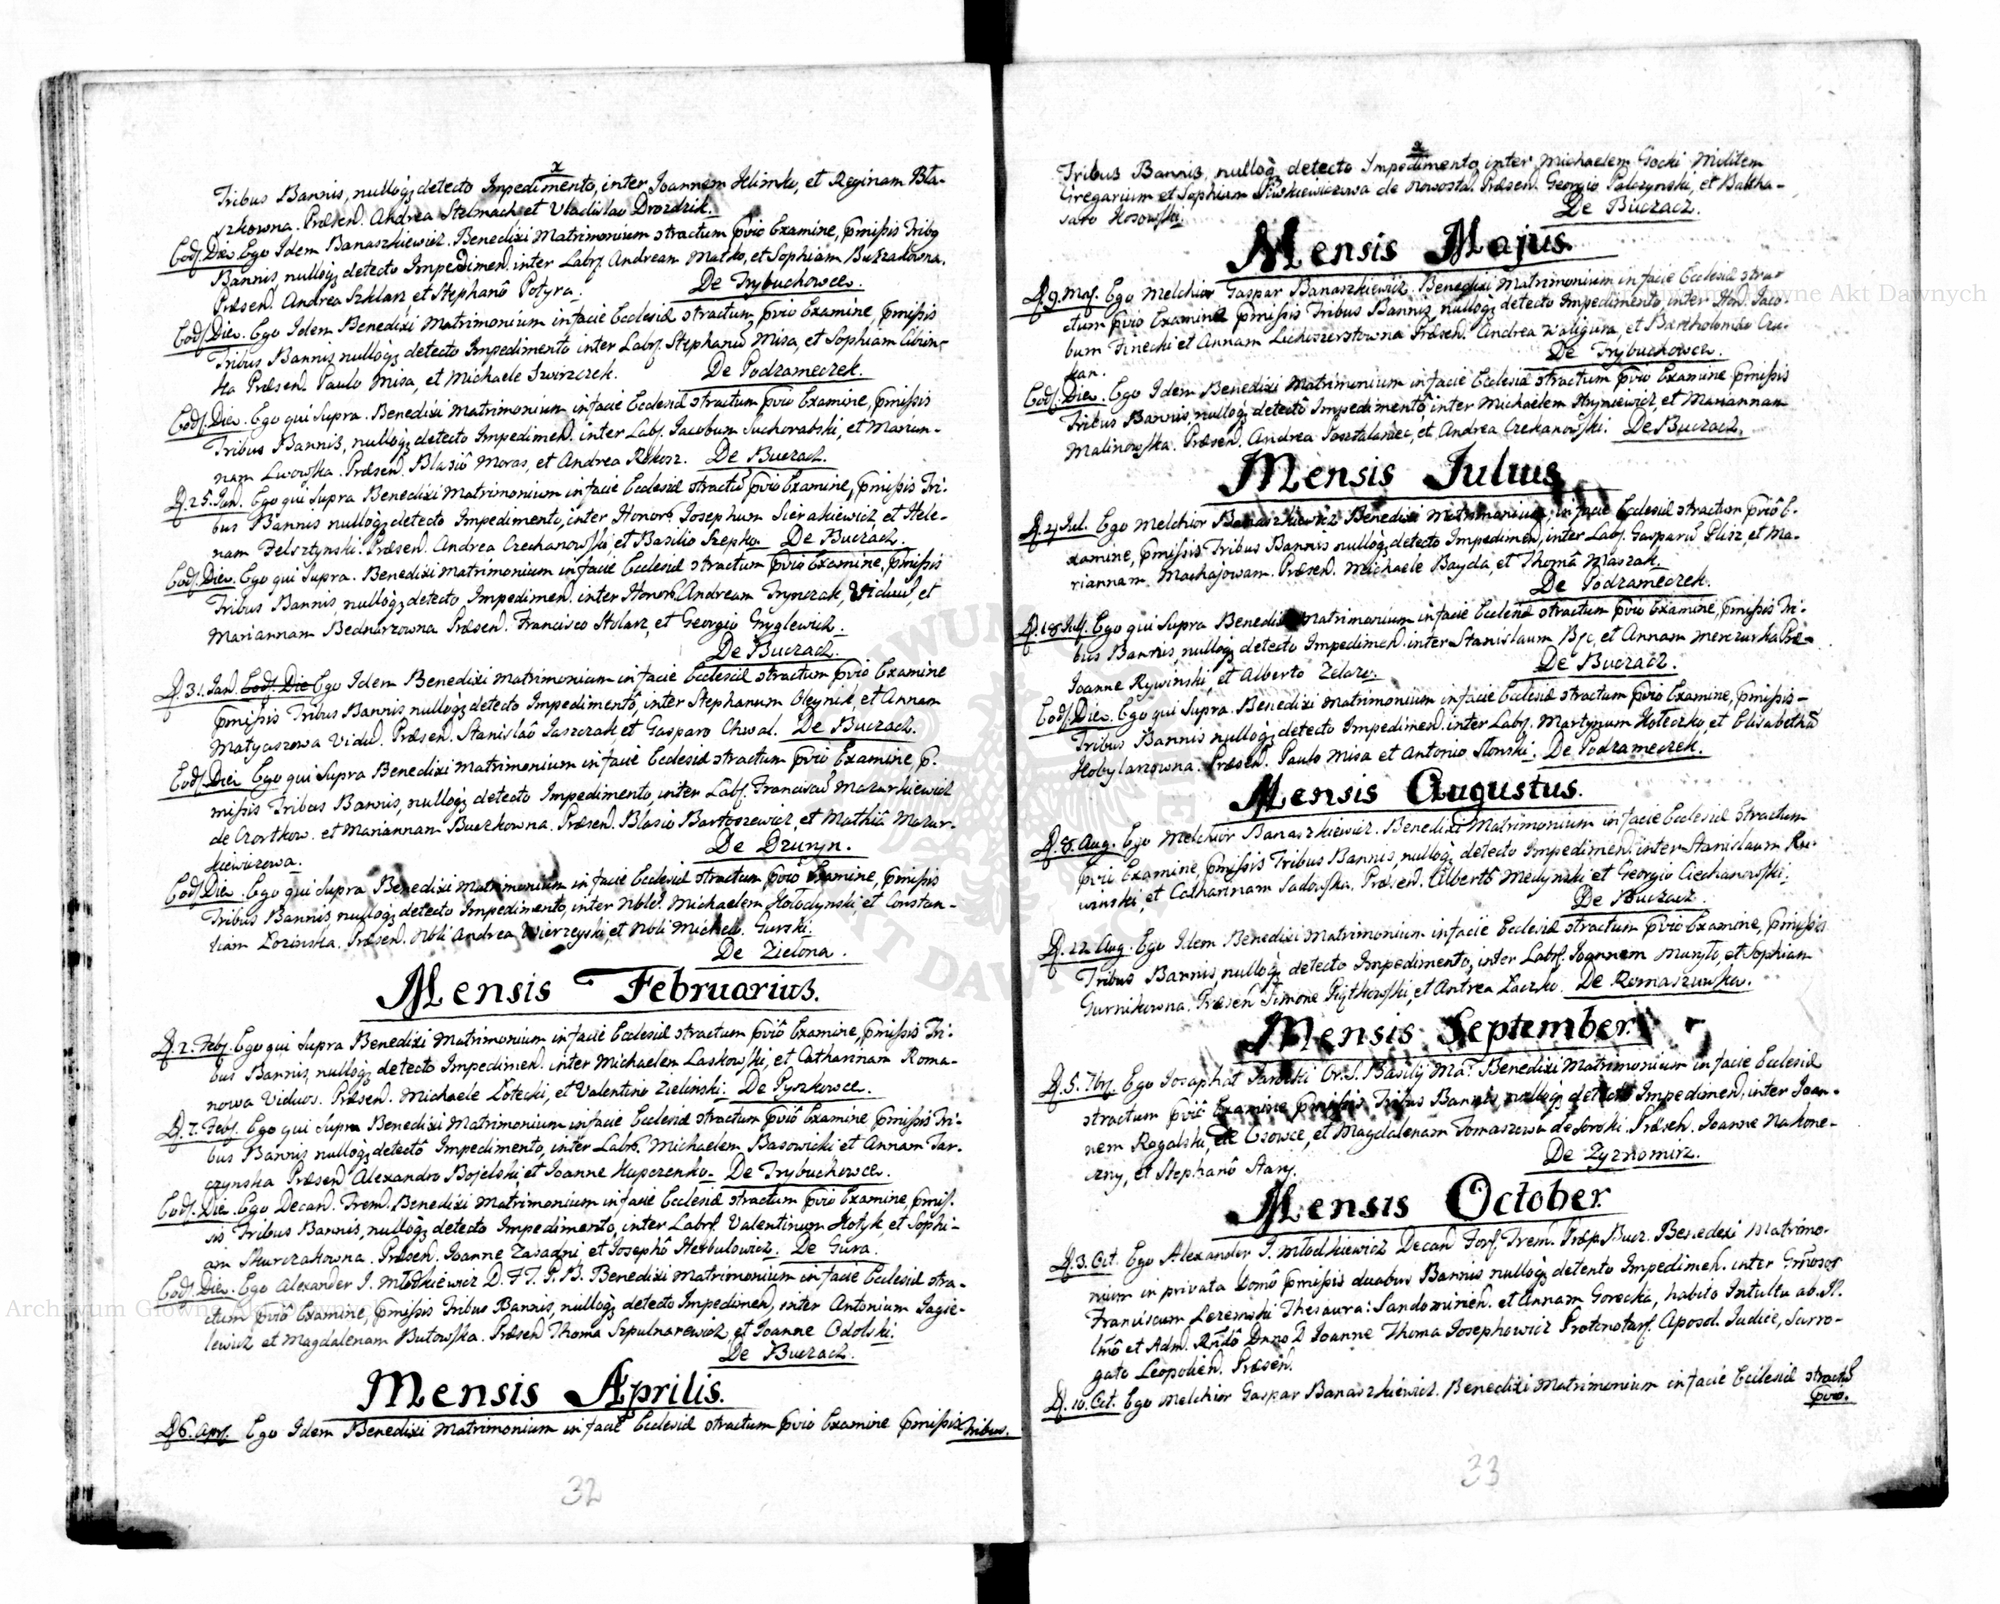 x
Tribus Bannis, nulloq; detecto Impedimento, inter Joannem Klimko, et Reginam Bła-
szkowna. Præsen. Andrea Stelmach et Vladislao Drozdzik.
Eod. Die. Ego Idem Banaszkiewicz. Benedixi Matrimonium stractum pvio Examine, pmissis Tribq
Bannis, nulloq; detecto Impedimen. inter Labr. Andream Matko, et Sophiam
Præsen. Andrea Szklarz et Stephanô Potyra. De Trybuchowce.
Eod. Die. Ego Idem Benedixi Matrimonium in facie Ecclesiæ stractum, pvio Examine, pmissis
Tribus Bannis nulloq; detecto Impedimento inter Labr. Stephanũ Misa, et Sophiam
ka Præsen. Paulo Misa, et Michaele Swirzczek. De Podzameczek.
Eod. Die. Ego qui Supra. Benedixi Matrimonium in facie Ecclesiæ stractum pvio Examine, pmissis
Tribus Bannis, nulloq; detecto Impedimen. inter Lab. Jacobum Suchorabski, et Marian-
nam Lwowska. Præsen. Blasiô Moras, et Andrea Rokosz. De Buczacz.
D. 25. Jan. Ego qui Supra Benedixi Matrimonium in facie Ecclesiæ stractũ pvio Examine, pmissis Tri-
bus Bannis nulloq; detecto Impedimento, inter Honor. Josephum Sierakiewicz, et Hele-
nam Felsztynski. Præsen. Andrea Czechanowski, et Basilio Szepko. De Buczacz.
Eod. Die. Ego qui Supra. Benedixi Matrimonium in facie Ecclesiæ stractum pvio Examine, pmissis
Tribus Bannis, nulloq; detecto Impedimen. inter Honor. Andream Trynczak, Viduũ, et
Mariannam Bednarzowna Præsen. Francisco Stolarz, et Georgio Gryglewicz.
De Buczacz.
D. 31. Jan. Eod. Die Ego Idem Benedixi Matrimonium in facie Ecclesiæ stractum pvio Examine
pmissis Tribus Bannis nulloq; detecto Impedimentô, inter Stephanum Oleynik, et Annam
Matyaszowa Vidu. Præsen. Stanislaô Jaszczak et Gasparo Chwal. De Buczacz.
Eod. Die. Ego qui Supra Benedixi Matrimonium in facie Ecclesiæ stractum pvio Examine p-
missis Tribus Bannis, nulloq; detecto Impedimento, inter Lab. Franciscũ Mazurkiewicz
de Czortkow. et Mariannam Buczkowna. Præsen. Blasio Bartoszewicz, et Mathiâ Mazur-
kiewiczowa. De Dzuryn.
Eod. Die. Ego qui Supra Benedixi Matrimonium in facie Ecclesiæ stractum pvio Examine, pmissis
Tribus Bannis, nulloq; detecto Impedimento, inter Nble. Michaelem Hołodynski, et Constan-
tiam Łozinska. Præsen. Nbli Andrea Wierzeyski, et Nbli Michele. Gurski.
De Zielona.
Mensis Februarius.
D. 2. Feb. Ego qui Supra Benedixi Matrimonium in facie Ecclesiæ stractum pviô Examine, pmissis Tri-
bus Bannis, nulloq; detecto Impedimen. inter Michaelem Laskowski, et Catharinam Roma-
nowa Viduos. Præsen. Michaele Łotecki, et Valentino Zielinski. De Pyszkowce.
D. 7. Feb. Ego qui Supra Benedixi Matrimonium in facie Ecclesiæ stractum pviô Examine pmissis Tri-
bus Bannis nulloq; detectô Impedimento, inter Labr. Michaelem Basowicki et Annam Tar-
czynska Præsen. Alexandro Bojelski, et Joanne Kupczenko. De Trybuchowce.
Eod. Die. Ego Decan. Trem. Benedixi Matrimonium in facie Ecclesiæ stractum pvio Examine, pmis-
sis Tribus Bannis, nulloq; detecto Impedimento, inter Labr. Valentinum Kotyk, et Sophi-
am Skurczakowna. Præsen. Joanne Zasadni et Josephô Herbulowicz. De Gura.
Eod. Die. Ego Alexander J. Młotkiewicz D. F. T. P. B. Benedixi Matrimonium in facie Ecclesiæ stra-
ctum pviô Examine, pmissis Tribus Bannis, nulloq; detecto Impedimen, inter Antonium Jagie-
lewicz et Magdalenam Butowska. Præsen Thoma Szpulnarewicz, et Joanne Odolski.
De Buczacz.
Mensis Aprilis.
D. 6. Apr. Ego Idem Benedixi Matrimonium in facie Ecclesiæ stractum pvio Examine pmissis Tribus.
32
x
Tribus Bannis, nulloq; detecto Impedimento inter Michaelem Gocki Militem
Gregarium et Sophiam de Nowosiol. Præsen. Georgio Palczynski, et Baltha-
saro Kosowski. De Buczacz.
Mensis Majus.
D. 9. Maj. Ego Melchior Gaspar Banaszkiewicz. Benedixi Matrimonium in facie Ecclesiæ stra-
ctum pvio Examine pmissis Tribus Bannis, nulloq; detecto Impedimento, inter Hon. Jaco-
bum Finecki et Annam Præsen. Andrea Waligura, et Bartholomæo
kan. De Trybuchowce.
Eod. Die. Ego Idem Benedixi Matrimonium in facie Ecclesiæ stractum pvio Examine pmissis
Tribus Bannis, nulloq; detectô Impedimentô, inter Michaelem Hryniewicz, et Mariannam
Malinowska. Præsen. Andrea Posztalaniec, et Andrea Czekanowski. De Buczacz.
Mensis Julius
D. 4. Jul. Ego Melchior Banaszkiewicz Benedixi Matrimonium, in facie Ecclesiæ stractum pviô E-
xamine, pmissis Tribus Bannis nulloq; detecto Impedimen, inter Lab. Gasparũ Glisz, et Ma-
riannam. Machajowam. Præsen. Michaele Bayda, et Thomâ Maszak.
De Podzameczek.
D. 18. Julÿ. Ego qui Supra Benedixi Matrimonium in facie Ecclesiæ stractum pvio Examine, pmissis Tri-
bus Bannis, nulloq; detecto Impedimen. inter Stanislaum Byc, et Annam Menczurka Præ-
Joanne Rywinski, et Alberto Zelazo. De Buczacz.
Eod. Die. Ego qui Supra. Benedixi Matrimonium in facie Ecclesiæ stractum pvio Examine, pmissis
Tribus Bannis nulloq; detecto Impedimen. inter Lab. Martynum Kołeczko, et Elisabethã
Kobylanzowna. Præsen. Paulo Misa et Antonio Słonski. De Podzameczek.
Mensis Augustus.
D. 8. Aug. Ego Melchior Banaszkiewicz. Benedixi Matrimonium in facie Ecclesiæ Stractum
pvii Examine, pmissis Tribus Bannis, nulloq; detecto Impedimen. inter Stanislaum Ru-
winski, et Catharinam Sadowska. Præsen. Albertô Medynski et Georgio Ciechanowski.
De Buczacz.
D. 22. Aug. Ego Idem Benedixi Matrimonium in facie Ecclesiæ stractum pvio Examine, pmissis
Tribus Bannis nulloq; detecto Impedimento, inter Labr. Joannem Muryło, et Sophiam
Gurnikowna. Præsen Simone Piątkowski, et Antrea Łaczko. De Romaszuwka.
Mensis September.
D. 5. 7br. Ego Josaphat Jarocki Or. S. Basilÿ Ma. Benedixi Matrimonium in facie Ecclesiæ
stractum pviô Examine pmissis Tribus Bannis nulloq; detecto Impedimen, inter Joan-
nem Rogalski, de Osowce, et Magdalenam Tomaszowa de Soroki. Præsen. Joanne Nakone-
czny, et Stephanô Stary. De Zyznomirz.
Mensis October.
D. 3. Oct. Ego Alexander J. Młodkiewicz Decan For. Trem. Præp. Bucz. Benedixi Matrimo-
nium in privata Domô pmissis duabus Bannis nulloq; detento Impedimen. inter Gñrosos
Franciscum Łozemski Thesaura: Sandomirien. et Annam Gorecka, habito Intultu ab. Il-
lmô et Adm. Rñdô Dnno D Joanne Thoma Josephowicz Protonotar. Aposol. Judice, Surro-
gato Leopolien. Præsen.
D. 10. Oct. Ego Melchior Gaspar Banaszkiewicz. Benedixi Matrimonium in facie Ecclesiæ stractũ
pvio.
33
Archiwum Główne Akt Dawnych